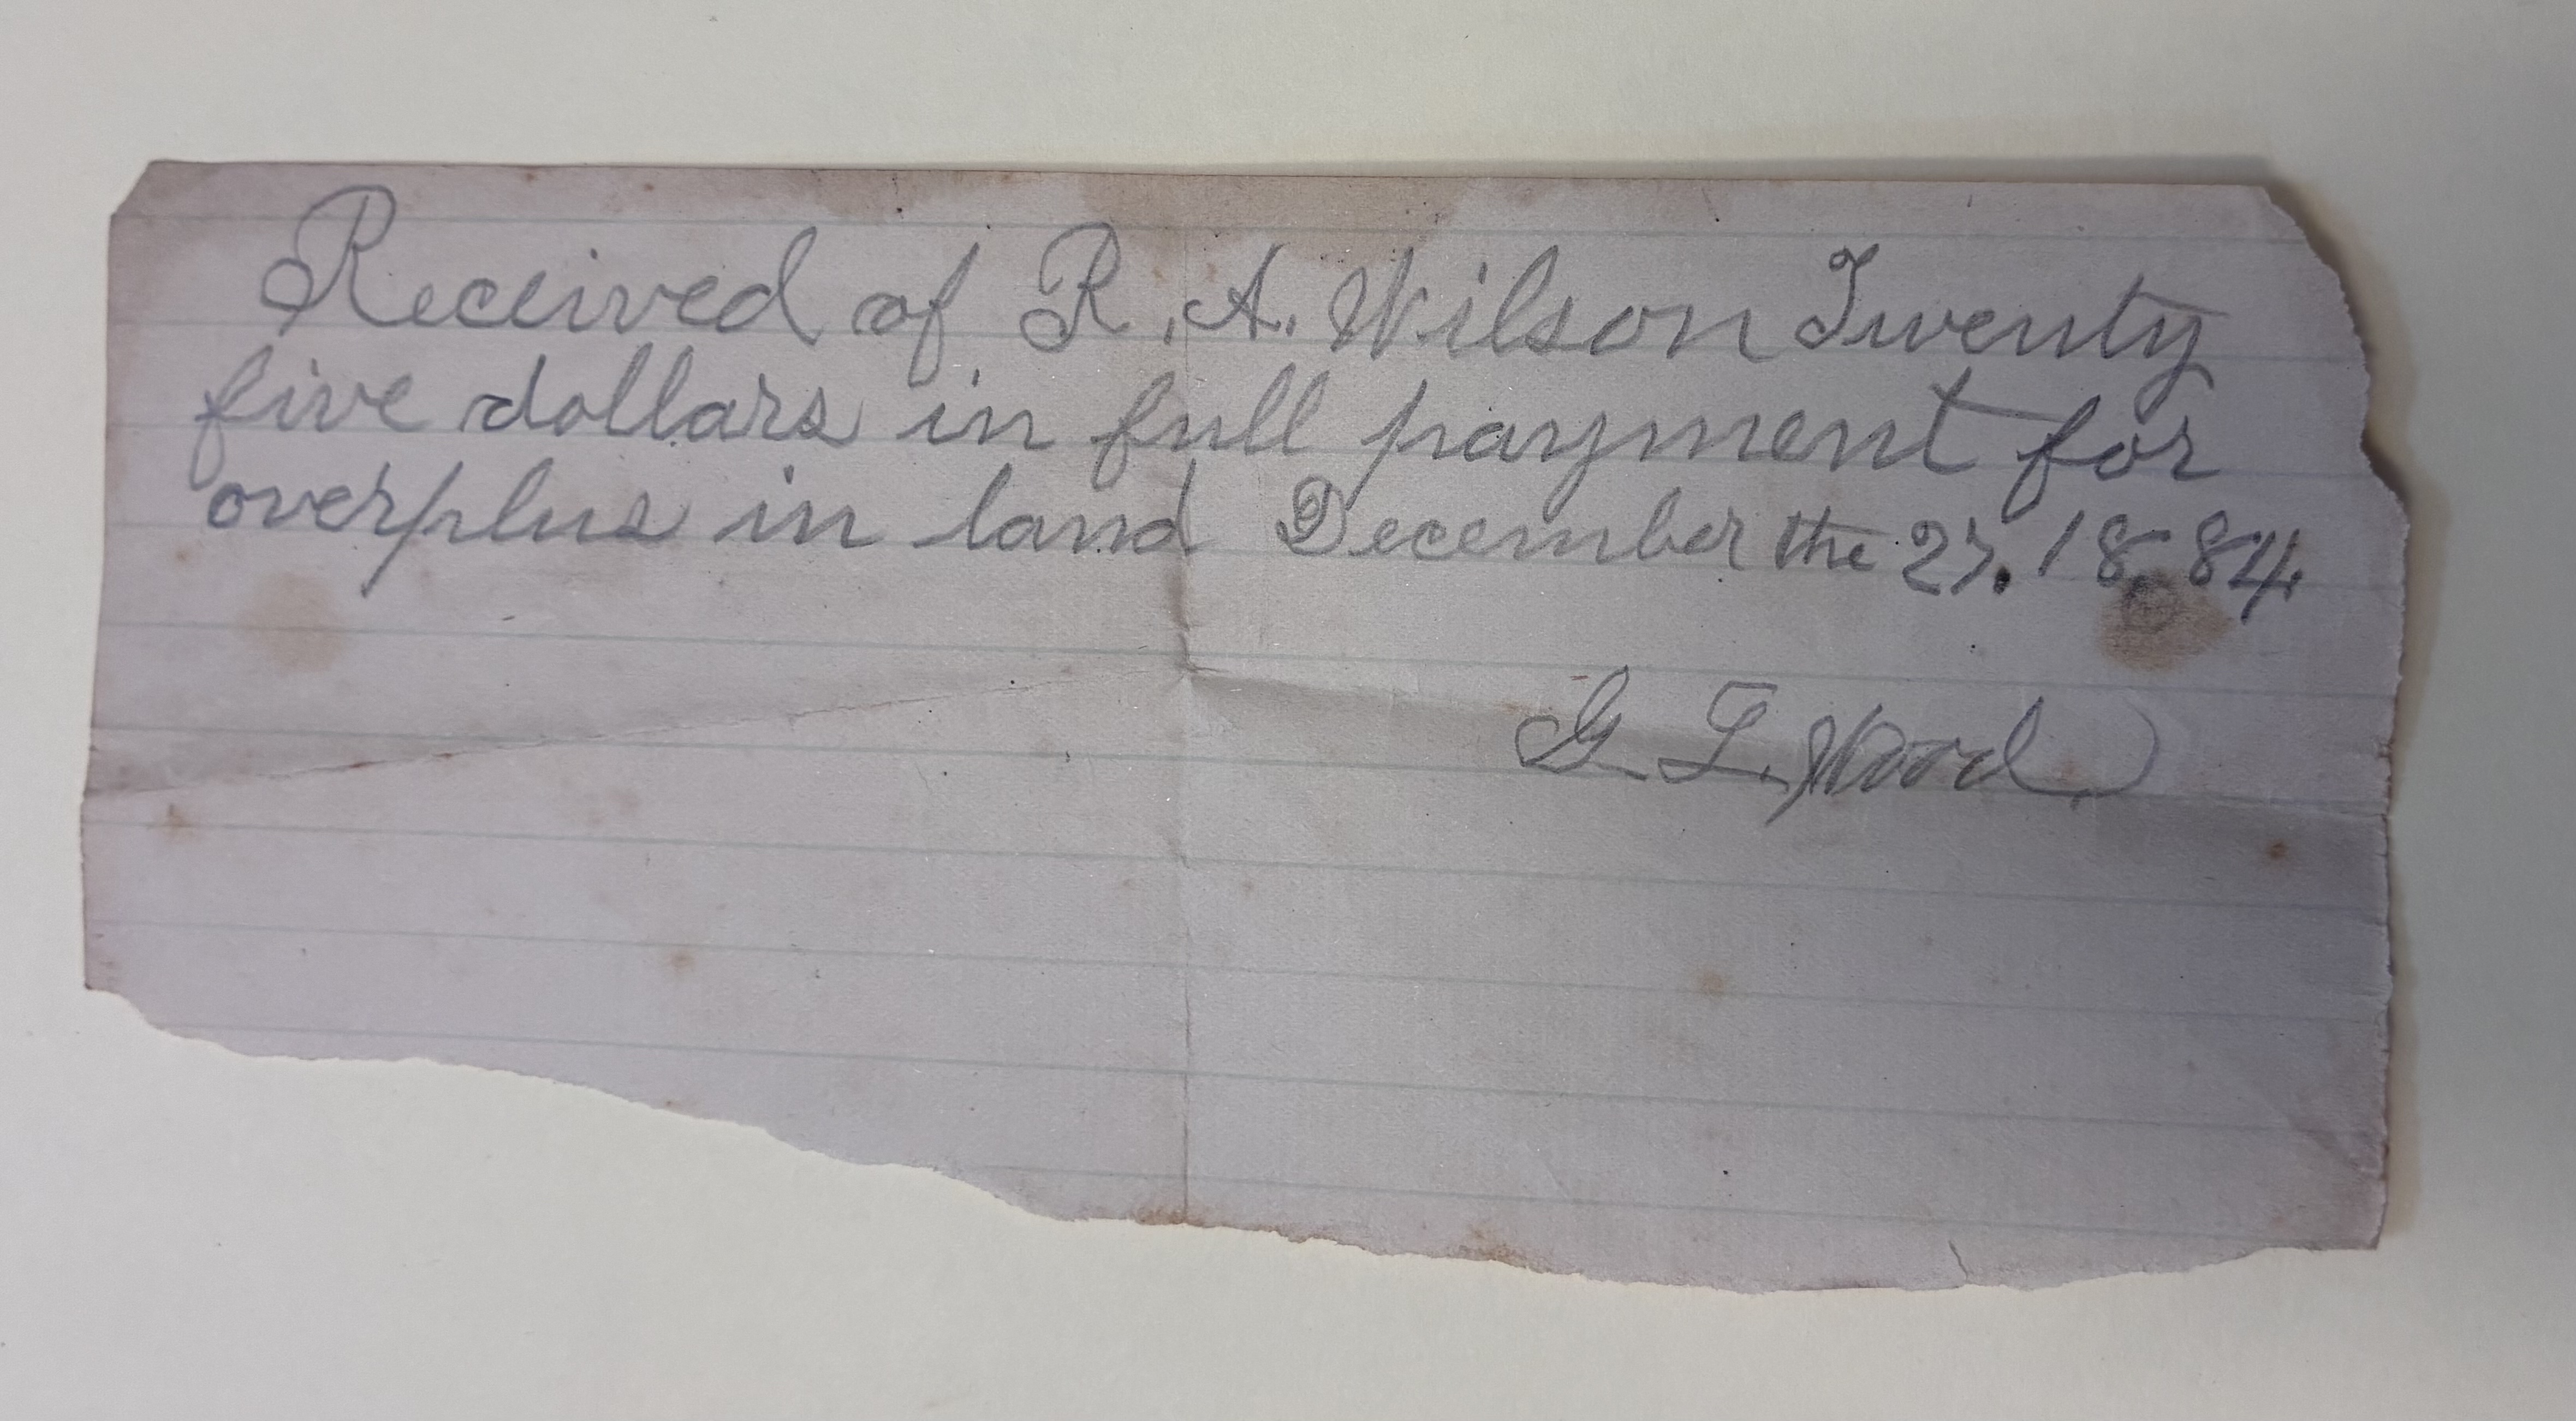 Received of R. A. Wilson Twenty
five dollars in full payment for
overplus in land December the 27. 18.84.
G. T. Wood